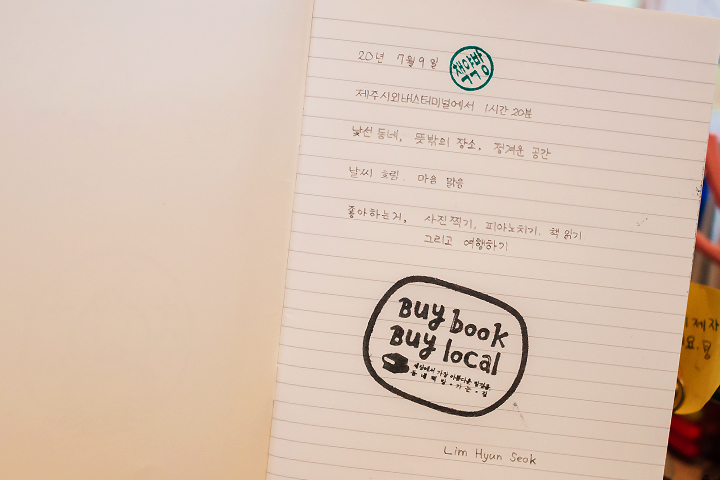 20년 7월 9일 책약방
제주시외버스터미널에서 1시간 20분
낯선 동네, 뜻밖의 장소, 정겨운 공간
날씨 흐림. 마음 맑음
좋아하는거, 사진찍기, 피아노치기, 책 읽기
그리고 여행하기
Buy book
Buy local
세상에서 가장 아름다운 발걸음
동네책방·가는·길
Lim Hyun Seok
제자